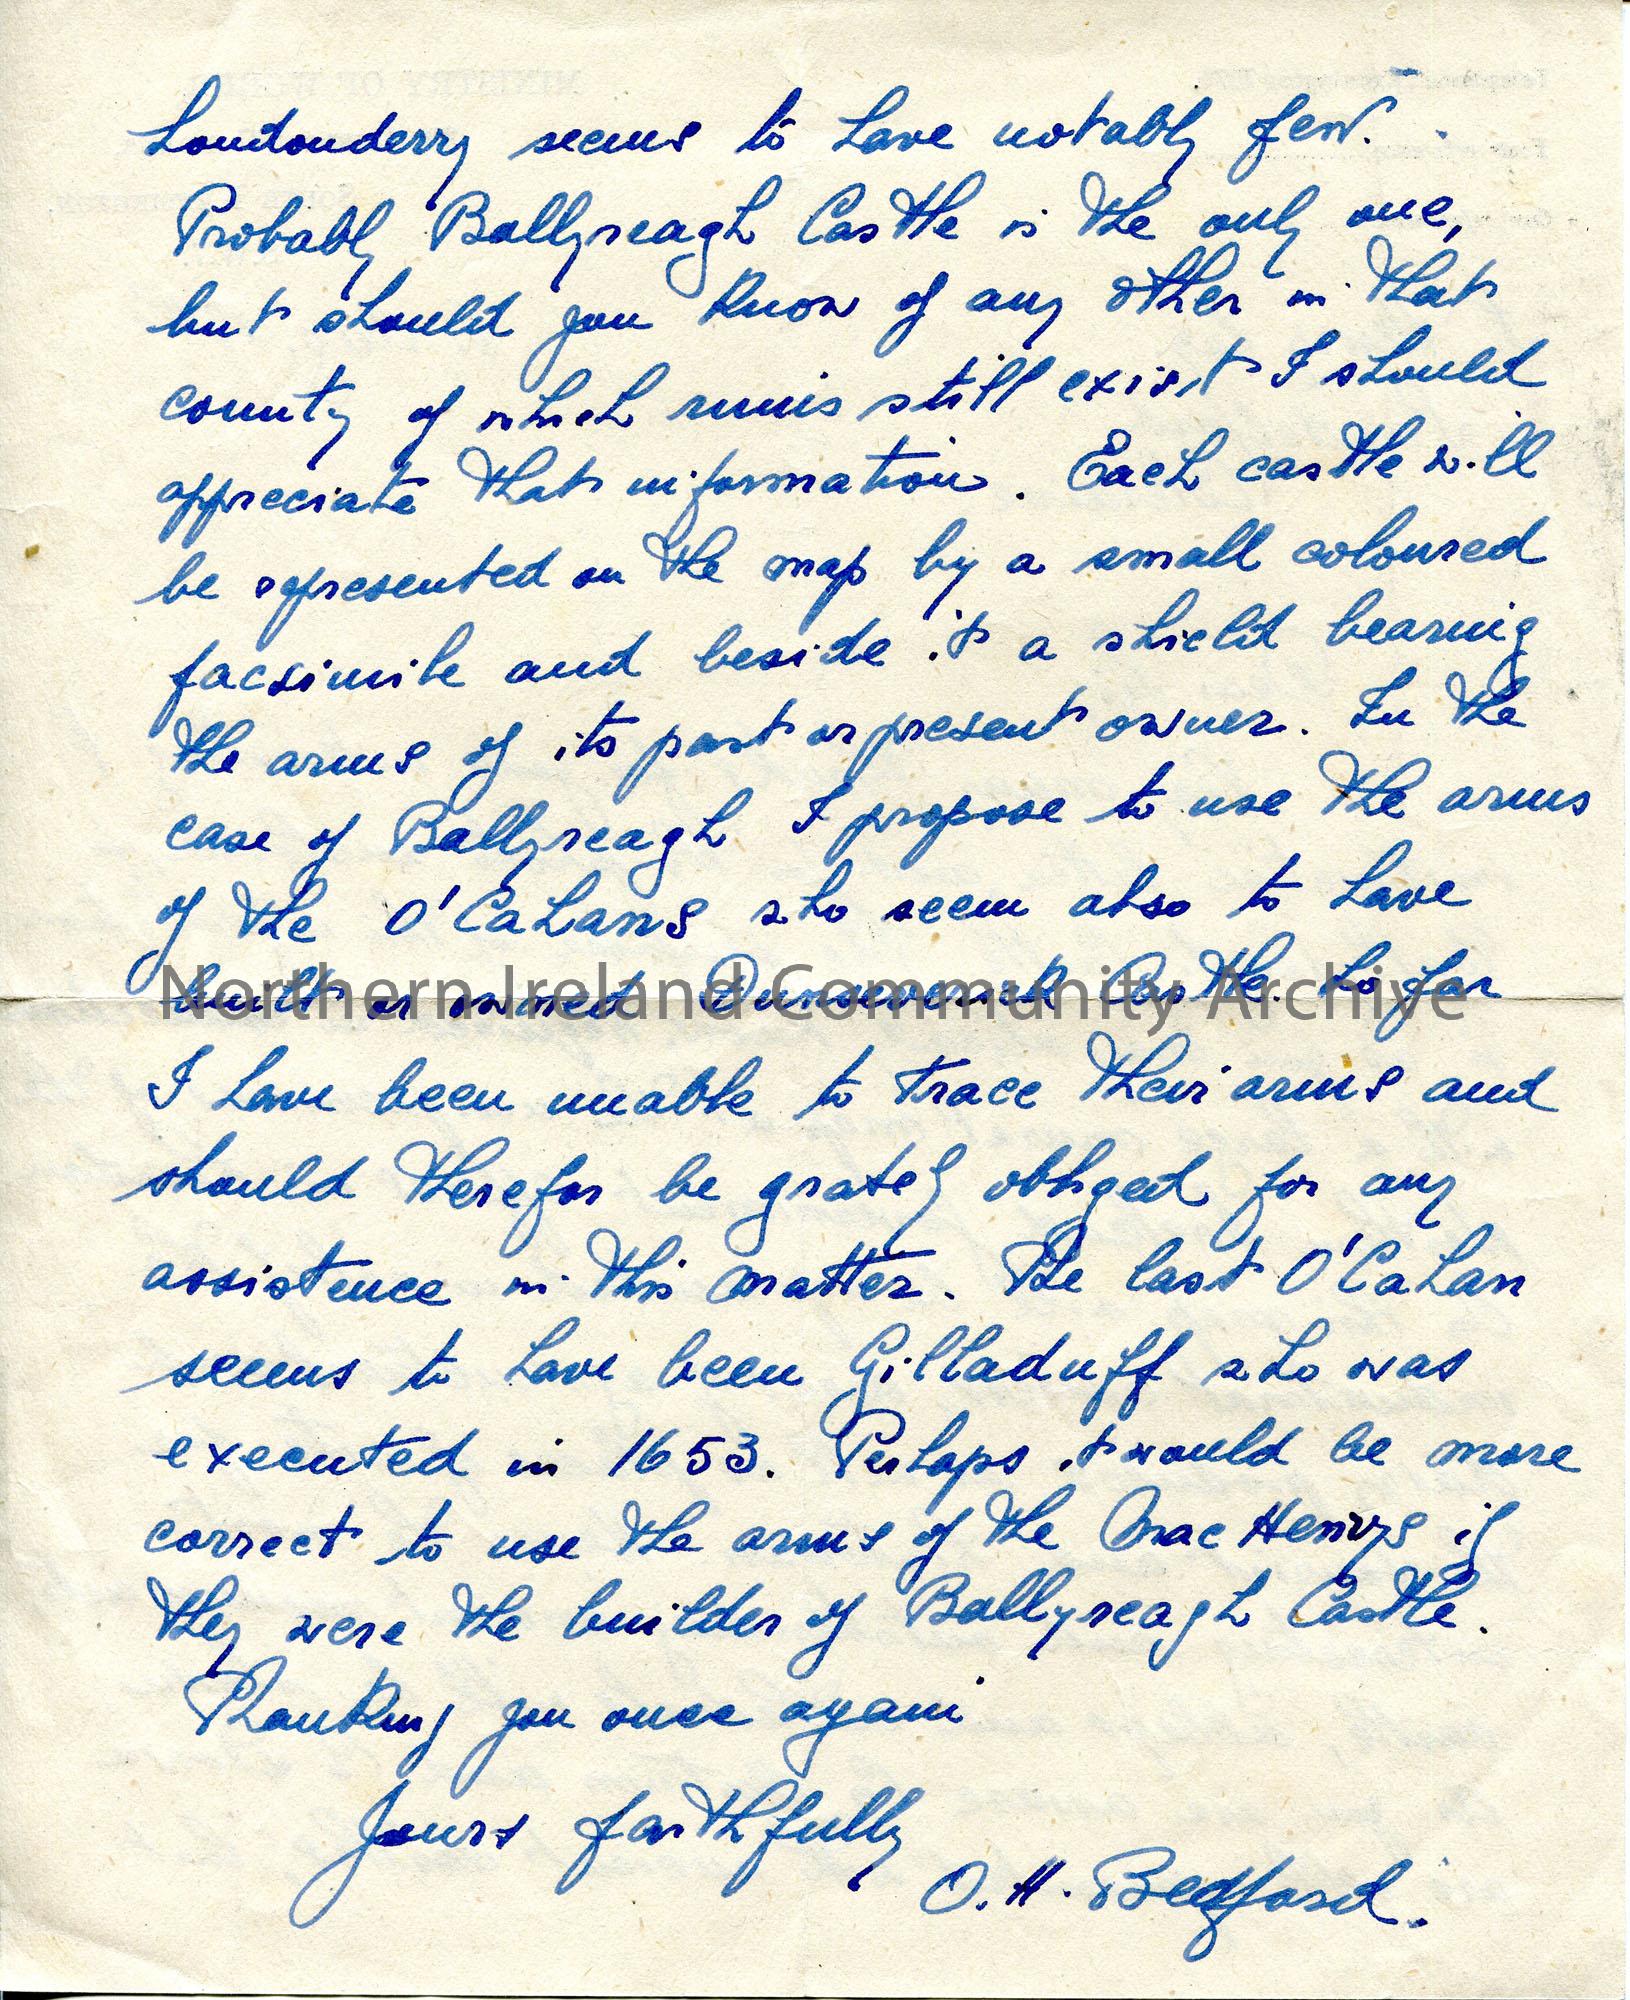 Londonderry seems to have notably few.
Probably Ballyreagh Castle is the only one,
but should you know of any other in that
county of which ruins still exist I should
appreciate that information. Each castle will
be represented on the map by a small coloured
facsimile and beside it a shield bearing
the arms of its past or present owner. In the
case of Ballyreagh I propose to use the arms
of the O'Cahans who seem also to have
built or owned Dunseverick Castle. So far
Northern Ireland Community Archive
I have been unable to trace their arms and
should therefor be grately obliged for any
assistence in this matter. The last O'Cahan
seems to have been Gilladuff who was
executed in 1653. Perhaps it would be more
correct to use the arms of the MacHenrys if
they were the builder of Ballyreagh Castle.
Thanking you once again
Yours faithfully
O. H. Bedford.